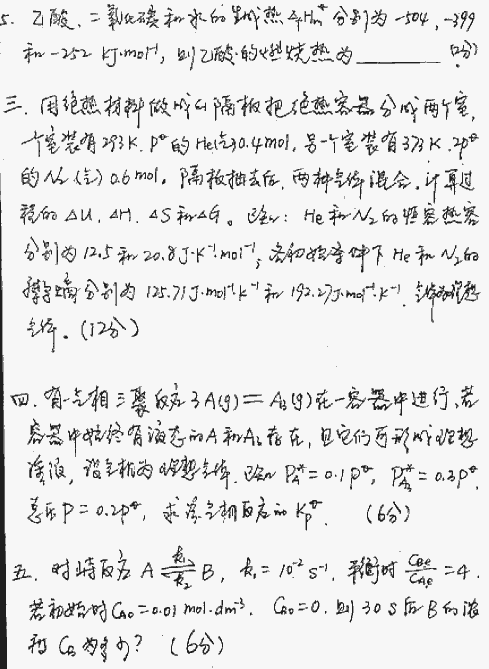 5. 乙酸、二氧化碳和水的生成热 ΔfHm° 分别为 -504, -399
和 -252 kJ·mol⁻¹, 则乙酸的燃烧热为________ (2分)
三. 用绝热材料做成的隔板把绝热容器分成两个室,
一个室装有 293K, p° 的 He(g) 0.4mol, 另一个室装有 373K, 2p°
的 N₂(g) 0.6mol. 隔板抽去后, 两种气体混合. 计算过
程的 ΔU, ΔH, ΔS 和 ΔG. 已知: He 和 N₂ 的恒容热容
分别为 12.5 和 20.8 J·K⁻¹·mol⁻¹; 各初始条件下 He 和 N₂ 的
摩尔熵分别为 125.71 J·mol⁻¹·K⁻¹ 和 192.27 J·mol⁻¹·K⁻¹. 气体为理想
气体. (12分)
四. 有一气相三聚反应 3A(g) = A₃(g) 在一容器中进行, 若
容器中始终有液态的 A 和 A₃ 存在, 且它们可形成理想
溶液, 设气相为理想气体. 已知 P_A* = 0.1p°, P_A₃* = 0.3p°,
总压 P = 0.2p°, 求该气相反应的 Kp°. (6分)
五. 对峙反应 A ⇌ B, k₁ = 10⁻² s⁻¹, 平衡时 C_Be/C_Ae = 4.
k₁
k₂
若初始时 C_A0 = 0.01 mol·dm⁻³, C_B0 = 0, 则 30 s 后 B 的浓
度 C_B 为多少? (6分)